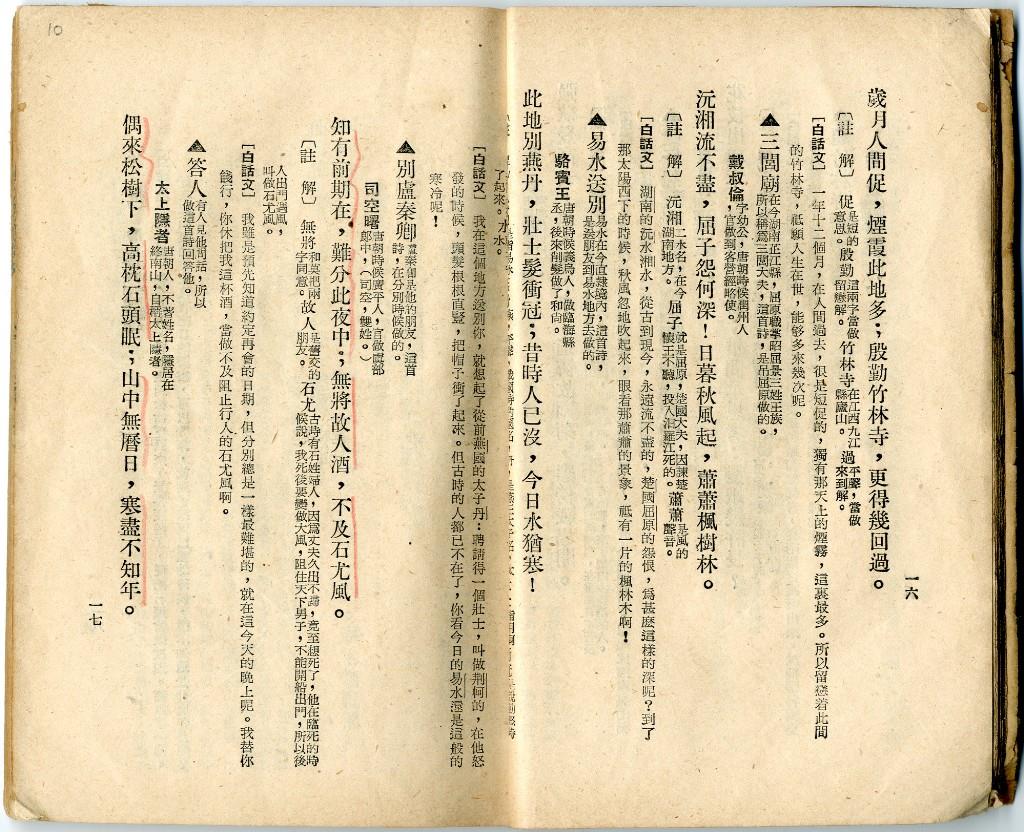 歲月人間促，煙霞此地多；殷勤竹林寺，更得幾回過。
〔註　解〕　促是短的意思。殷勤這兩字當做留戀解。竹林寺在江西九江縣廬山。過平聲，當做來到解。
〔白話文〕　一年十二個月，在人間過去，很是短促的，獨有那天上的煙霧，這裏最多。所以留戀着此間
的竹林寺，祇願人生在世，能够多來幾次呢。
▲三閭廟在今湖南芷江縣，屈原職掌昭屈景三姓王族，所以稱爲三閭大夫，這首詩，是弔屈原做的。
戴叔倫字幼公，唐朝時候潤州人，官做到容管經略使。
沅湘流不盡，屈子怨何深！日暮秋風起，蕭蕭楓樹林。
〔註　解〕　沅湘二水名，在今湖南地方。屈子就是屈原，楚國大夫，因諫楚懷王不聽，投入汨羅江死的。蕭蕭是風的聲音。
〔白話文〕　湖南的沅水湘水，從古到現今，永遠流不盡的，楚國屈原的怨恨，爲甚麽這樣的深呢？到了
那太陽西下的時候，秋風忽地吹起來，眼看那蕭蕭的景象，祇有一片的楓林木啊！
▲易水送別易水在今直隸境內，這首詩，是送朋友到易水地方去做的。
駱賓王唐朝時候義烏人，做臨海縣丞，後來削髮做了和尚。
此地別燕丹，壯士髮衝冠；昔時人已沒，今日水猶寒！
一六
10
了起來。才水。
〔白話文〕　我在這個地方送別你，就想起了從前燕國的太子丹：聘請得一個壯士，叫做荆軻的，在他怒
發的時候，頭髮根根直豎，把帽子衝了起來。但古時的人都已不在了，你看今日的易水還是這般的
寒冷呢！
▲別盧秦卿盧秦卿是他的朋友，這首詩，在分別時候做的。
司空曙唐朝時候廣平人，官做虞部郎中，（司空，雙姓。）
知有前期在，難分此夜中；無將故人酒，不及石尤風。
〔註　解〕　無將和莫把兩字同意。故人是舊交的朋友。石尤古時有石姓婦人，因爲丈夫久出不歸，竟至想死了，他在臨死的時候說，我死後要變做大風，阻住天下男子，不能開船出門，所以後
人出門遇風，叫做石尤風。
〔白話文〕　我雖是預先知道約定再會的日期，但分別總是一樣最難堪的，就在這今天的晚上呢。我替你
餞行，你休把我這杯酒，當做不及阻止行人的石尤風啊。
▲答人有人見他問話，所以做這首詩回答他。
太上隱者唐朝人，不著姓名，隱居在終南山，自稱太上隱者。
偶來松樹下，高枕石頭眠；山中無曆日，寒盡不知年。
一七